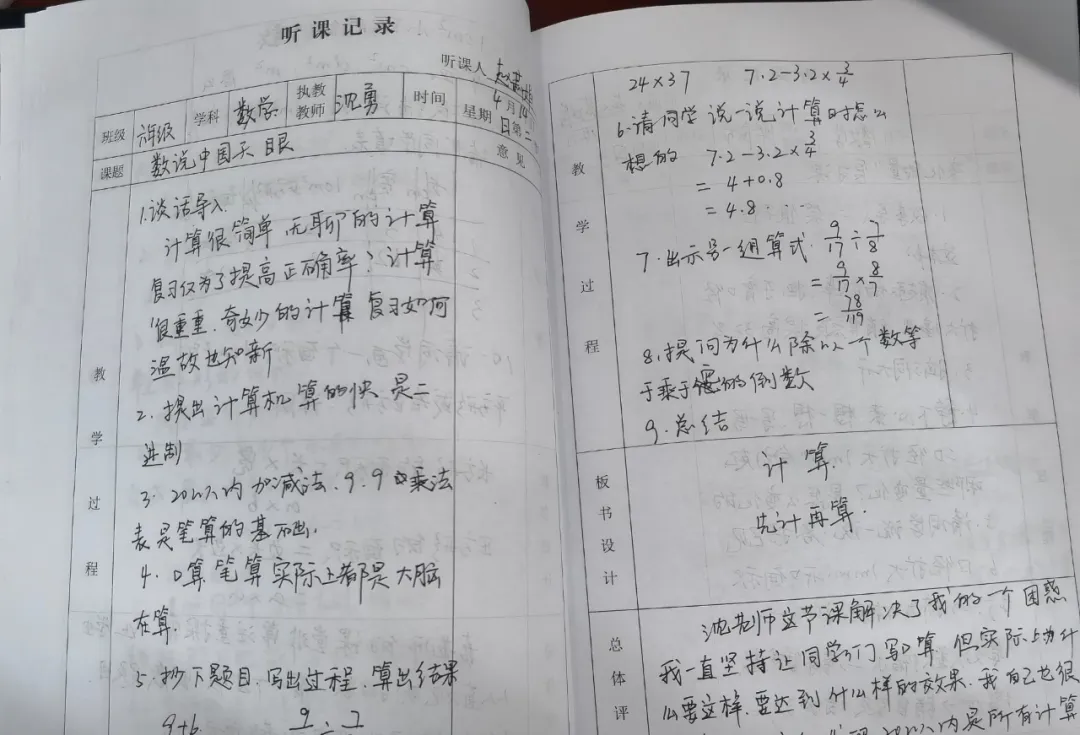 听课记录
听课人
班级 六年级 学科 数学 执教教师 沈勇 时间 4月14日 星期 第二
课题 数说中国天眼 意见
教学过程
1.谈话导入
计算很简单,无聊的计算
复习仅为了提高正确率?计算
很重重,奇妙的计算 复习如何
温故也知新
2.提出计算机算的快是二
进制
3.20以内加减法.9.9的乘法
表是笔算的基础.
4.口算笔算实际上都是大脑
在算.
5.抄下题目.写出过程.算出结果
9+6
24×37 7.2-3.2×3/4
教学过程
6.请同学说一说计算时怎么
想的 7.2-3.2×3/4
=4+0.8
=4.8
7.出示另一组算式.9/17÷7/8
=9/17×8/7
=78/119
8.提问为什么除以一个数等
于乘于它的倒数
9.总结
板书设计
计算.
先计再算.
总体评
沈老师这节课解决了我的一个困惑
我一直坚持让同学们写口算.但实际上为什
么要这样.要达到什么样的效果.我自己也很
20以内是所有计算